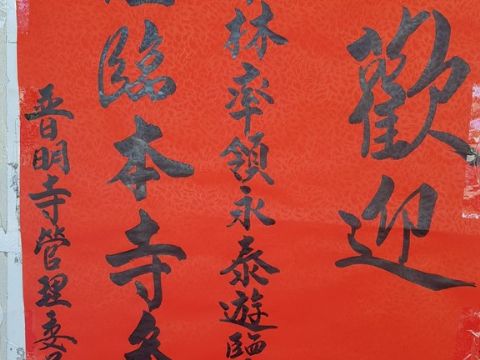 歡迎
林率領永泰遊
臨本寺
普明寺管理委